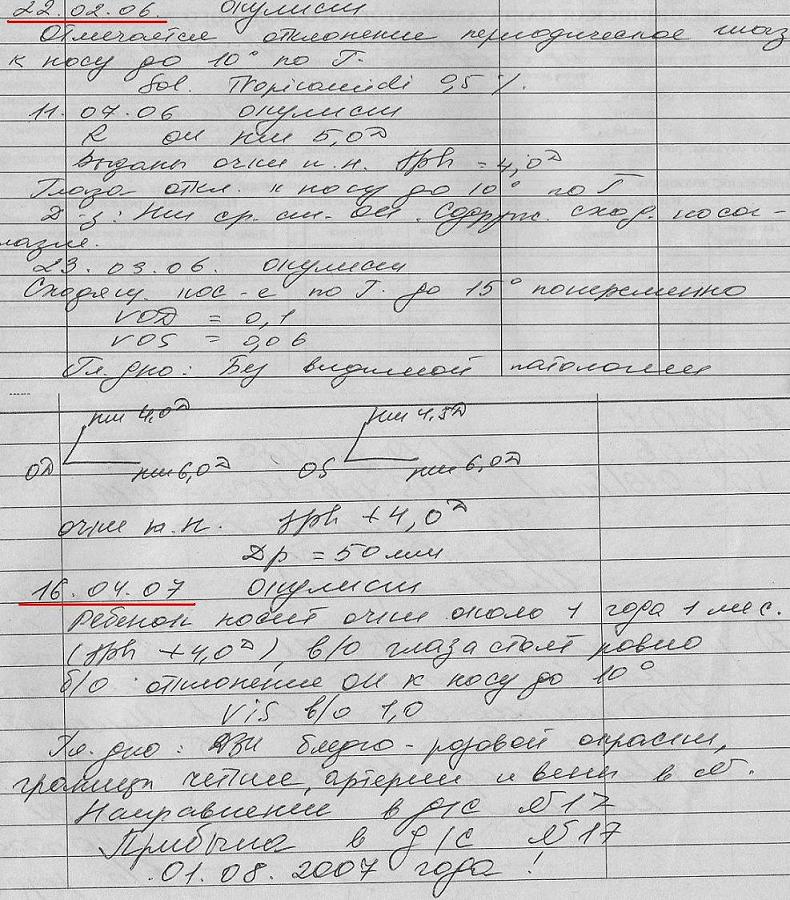 22.02.06. окулист
Отмечается отклонение периодическое глаз
к носу до 10° по Г.
Sol. Tropicamidi 0,5 %.
11.07.06 окулист
R ou нм 5,0D
Выданы очки п.н. sph = 4,0D
Глаза откл. к носу до 10° по Г
Д-з: Нм ср. ст. OU. Содруж. сход. косог-
лазие.
23.03.06. окулист
Сходящ. кос-е по Г. до 15° попеременно
VOD = 0,1
VOS = 0,06
Гл. дно: Без видимой патологии
нм 4,0D нм 4,5D
OD нм 6,0D OS нм 6,0D
очки п.н. sph +4,0D
Dp = 50 мм
16.04.07 окулист
Ребенок носит очки около 1 года 1 мес.
(sph +4,0D), в/о глаза стоят ровно
б/о отклонение OU к носу до 10°
Vis в/о 1,0
Гл. дно: ДЗН бледно-розовой окраски,
границы четкие, артерии и вены в N.
Направлении в д/с №17
Прибыла в д/с №17
01.08.2007 года!